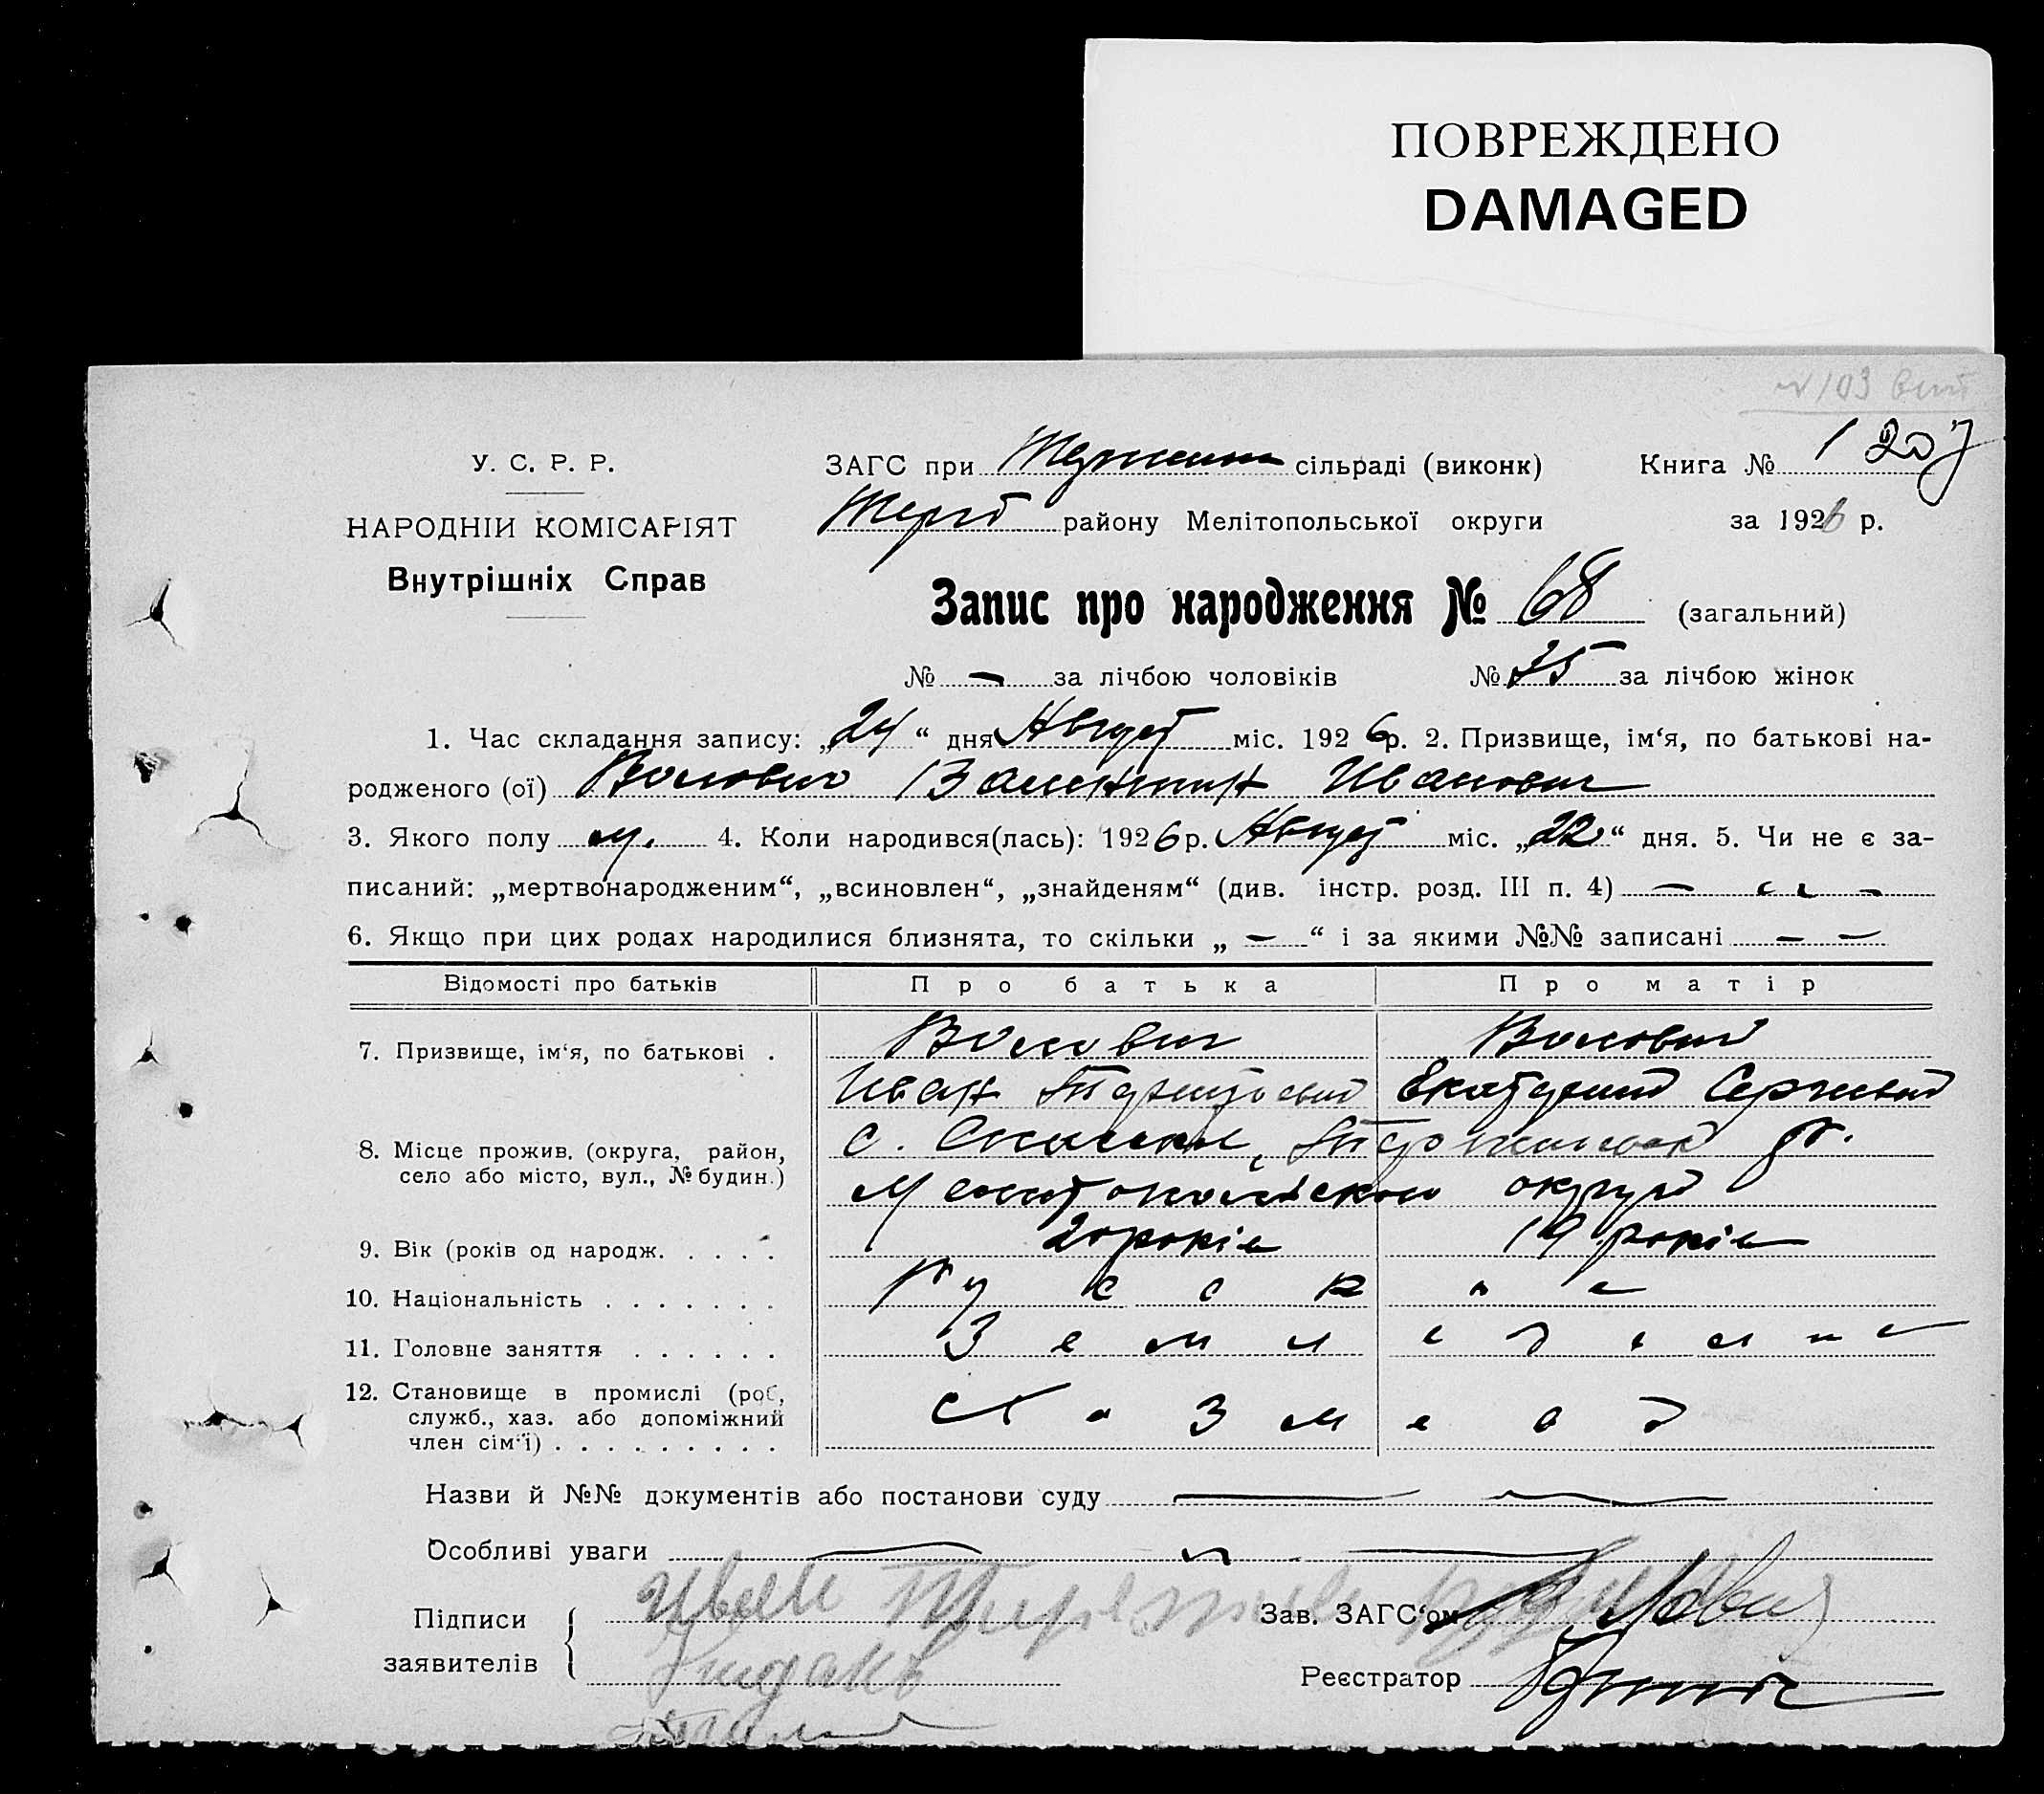 ПОВРЕЖДЕНО
DAMAGED
№ 103
У. С. Р. Р.
ЗАГС при сільраді (виконк)
Книга № 1
207
НАРОДНІЙ КОМІСАРІЯТ
району Мелітопольської округи
за 1926 р.
Внутрішніх Справ
Запис про народження № 68 (загальний)
№ — за лічбою чоловіків № 35 за лічбою жінок
1. Час складання запису: „24“ дня Август міс. 1926 р. 2. Призвище, ім‘я, по батькові на-
родженого (ої) Волович Валентин Иванович
3. Якого полу м. 4. Коли народився(лась): 1926 р. Август міс. „22“ дня. 5. Чи не є за-
писаний: „мертвонародженим“, „всиновлен“, „знайденям“ (див. інстр. розд. III п. 4) —
6. Якщо при цих родах народилися близнята, то скільки „ — “ і за якими №№ записані — —
Відомості про батьків
Про батька
Про матір
7. Призвище, ім‘я, по батькові .
Волович
Волович
Иван
Екатерина Сергиевна
8. Місце прожив. (округа, район,
село або місто, вул., № будин.)
с. р.
Мелитопольскои округи
9. Вік (років од народж. . . . .
20 років
19 років
10. Національність . . . . . . .
Русск
11. Головне заняття . . . . . .
Земледелие
12. Становище в промислі (роб,
служб., хаз. або допоміжний
член сім‘ї) . . . . . . . . .
Назви й №№ документів або постанови суду
Особливі уваги
Підписи
заявителів
Иван
Зав. ЗАГС‘ом
Реєстратор